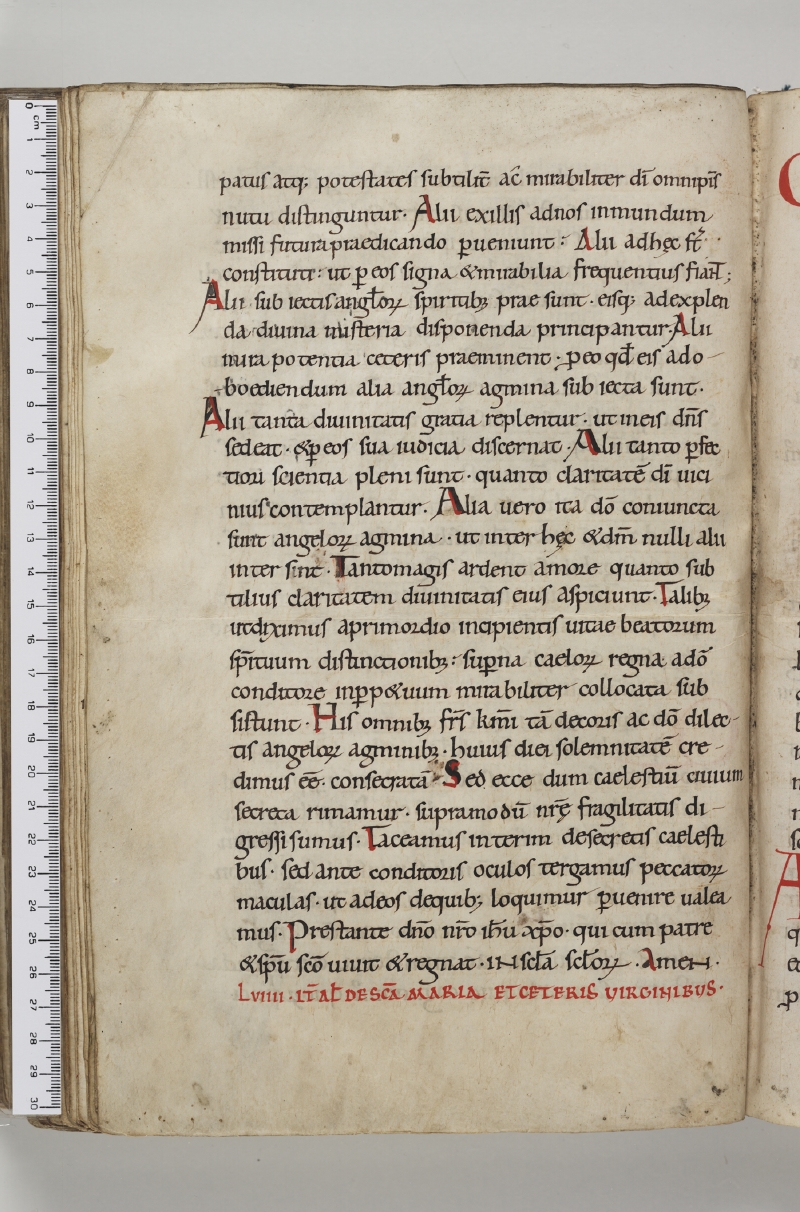 patus atq; potestates subtilit̄ ac̄ mirabiliter dī omnip̄is
nutu distinguntur· Alii exillis adnos inmundum
missi futura praedicando ꝑueniunt: Alii adhęc st̄
constituti: ut ꝑ eos signa &mirabilia frequentius fiant;
Alii sub iectis angl̄oꝝ spiritibꝫ prae sunt· eisqꝫ adexplen
da diuina misteria disponenda principantur· Alii
mira potentia ceteris praeminent· ꝑeo qd̄ eis ado-
boediendum alia angl̄oꝝ agmina sub iecta sunt·
Alii tanta diuinitatis gratia replentur· ut ineis dn̄s
sedeat· &ꝑ eos sua iudicia discernat· Alii tanto ꝑfec
tiori scientia pleni sunt· quanto claritatē dī uici
nius contemplantur· Alia uero ita dō coniuncta
sunt angeloꝝ agmina· ut inter hęc &dm̄ nulli alii
inter sint· Tantomagis ardent amore quanto sub
tilius claritatem diuinitatis eius aspiciunt· Talibꝫ
utdiximus aprimordio incipientis uitae beatorum
sp̄irituum distinctionibꝫ: suꝑna caeloꝝ regna adō
conditore inꝑp&uum mirabiliter collocata sub
sistunt· His omnibꝫ fr̄s km̄i tā decoris ac dō dilec-
tis angeloꝝ agminibꝫ· huius diei solemnitatē cre-
dimus eē· consecratā· Sed ecce dum caelestiū ciuium
secreta rimamur· supramodū nr̄ę fragilitatis di-
gressi sumus· Taceamus interim desecretis caelesti
bus· sed ante conditoris oculos tergamus peccatoꝝ
maculas· ut adeos dequibꝫ loquimur ꝑuenire ualea
mus· Prestante dn̄o nr̄o ih̄u xp̄o· qui cum patre
&sp̄u scō uiuit &regnat· IN scl̄a scl̄oꝝ· AmeN·
LVIIII· IT̄ AL̄ DE SCĀ MARIA ET CETERIS VIRGINIBUS·